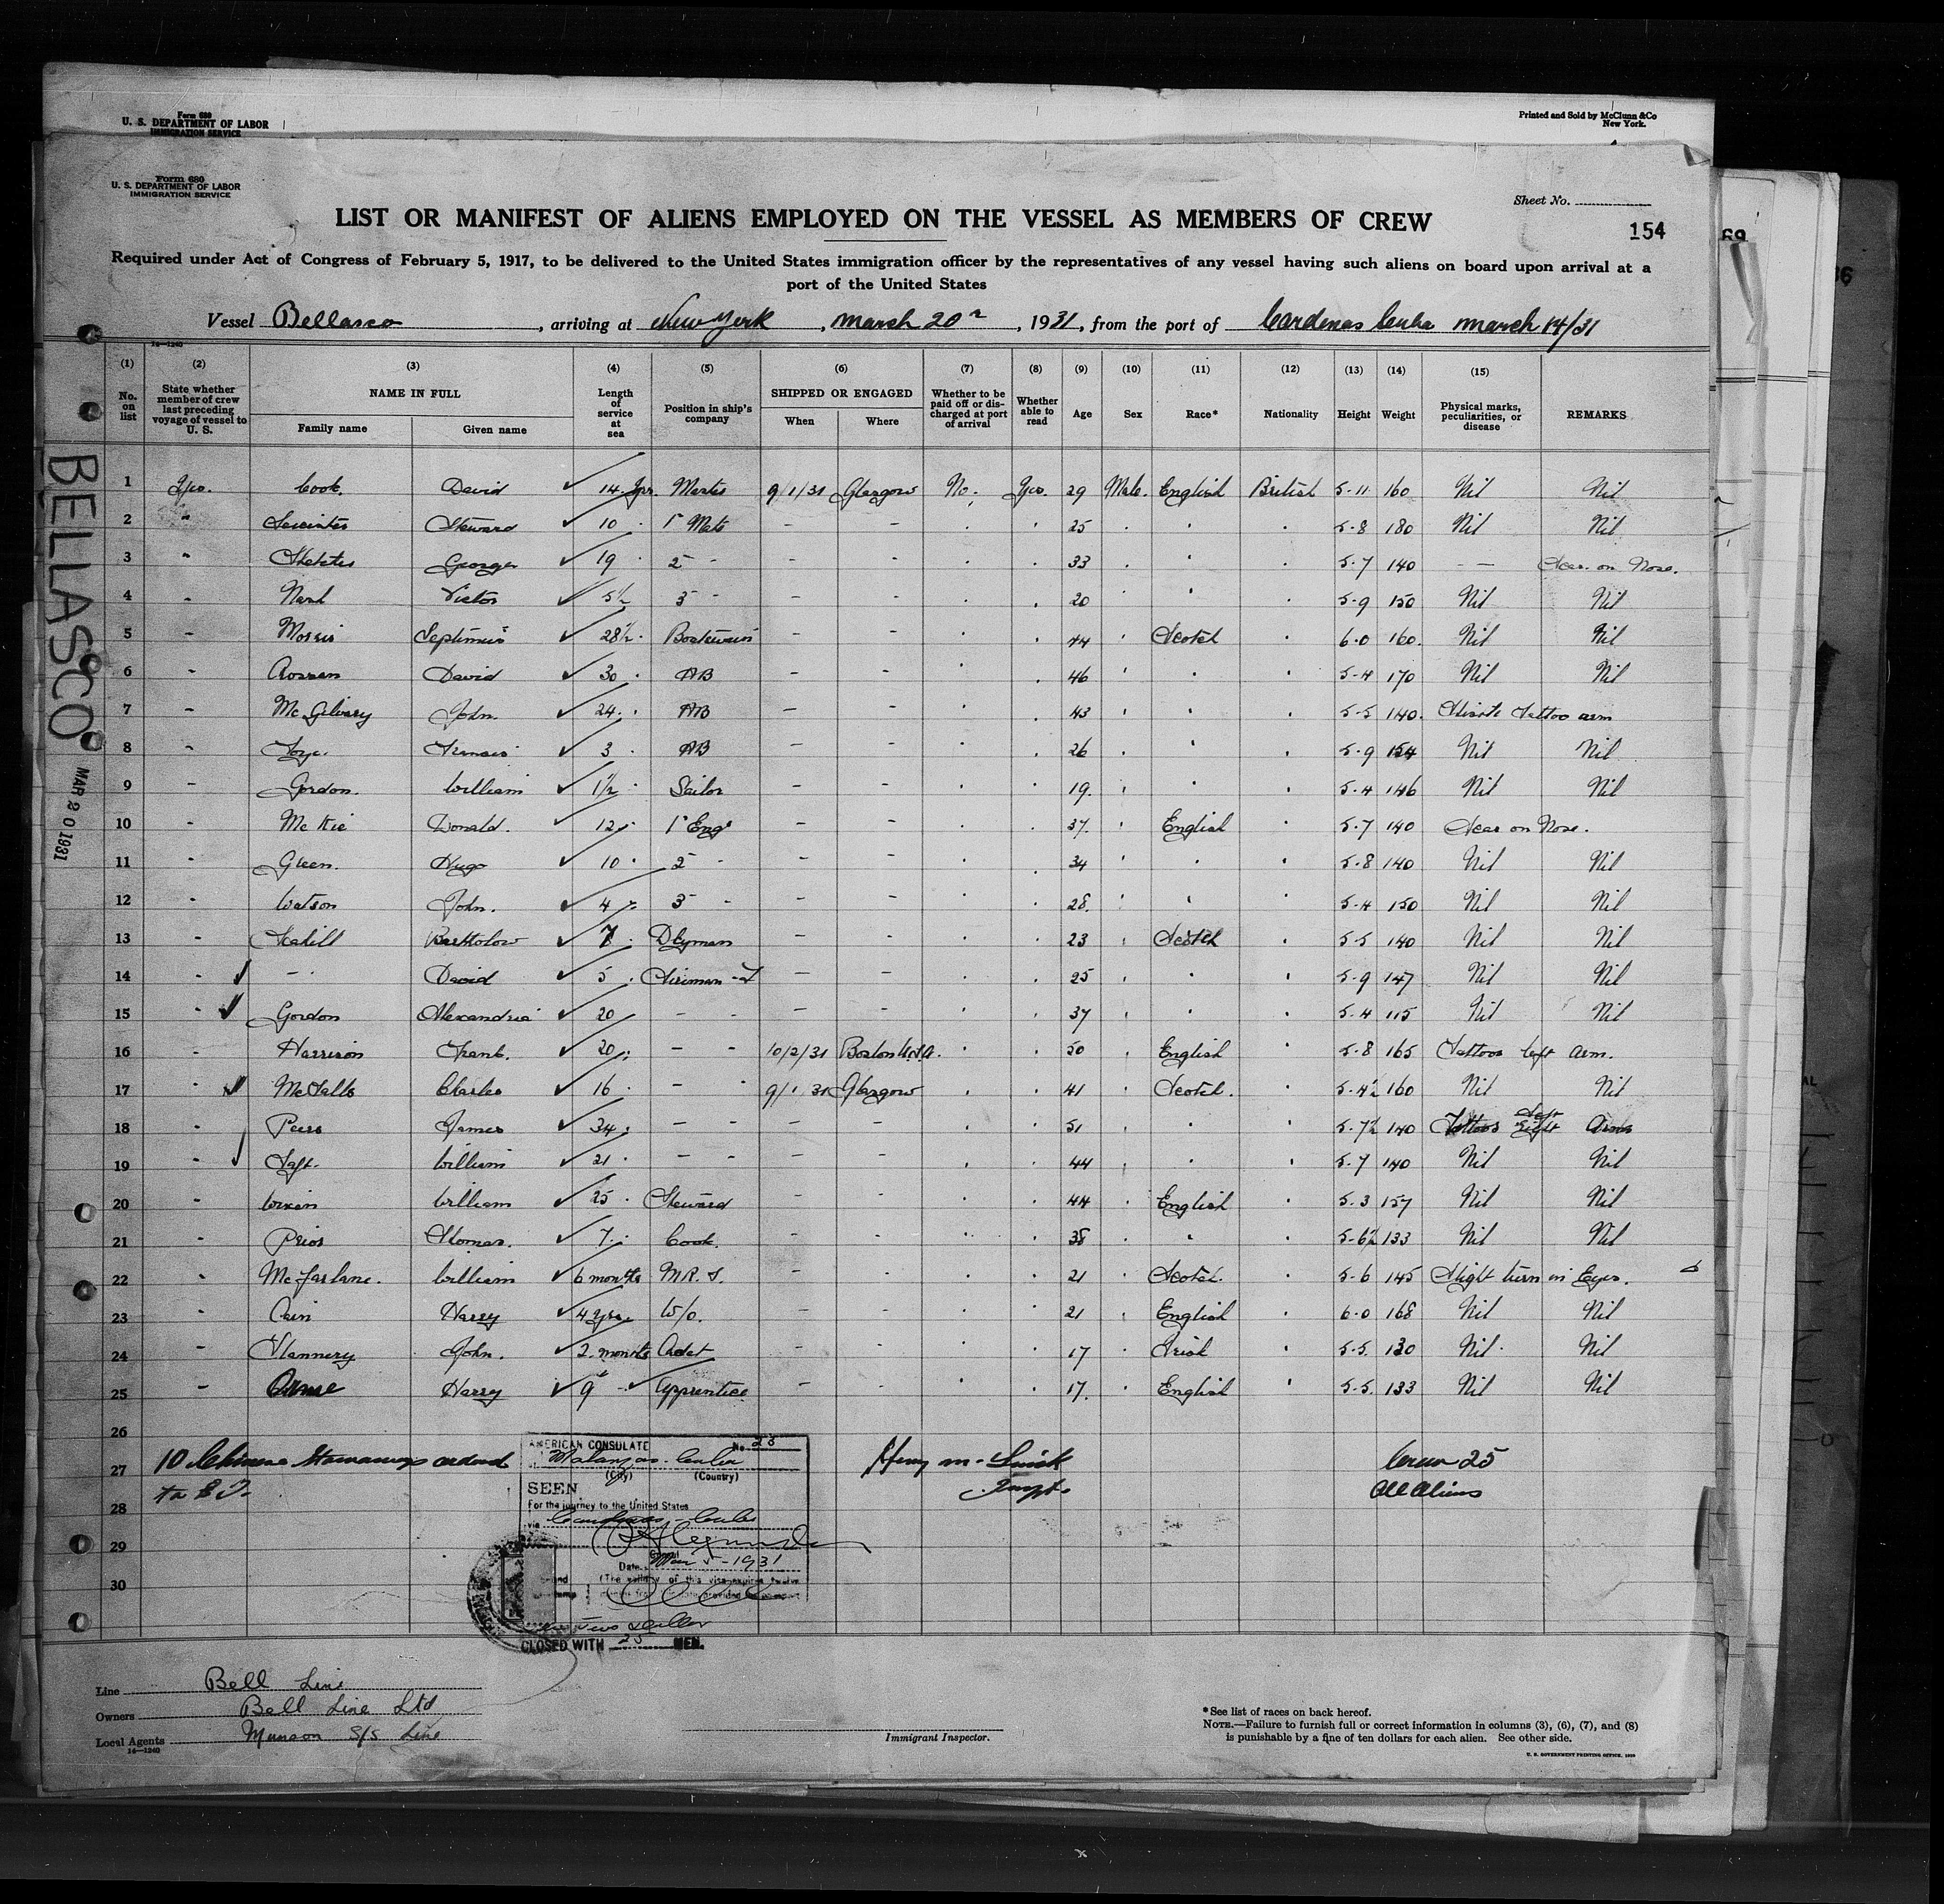 Form 680
U. S. DEPARTMENT OF LABOR
IMMIGRATION SERVICE
Printed and Sold by McClunn &Co
New York.
Form 680
U. S. DEPARTMENT OF LABOR
IMMIGRATION SERVICE
Sheet No.
LIST OR MANIFEST OF ALIENS EMPLOYED ON THE VESSEL AS MEMBERS OF CREW
154
69
Required under Act of Congress of February 5, 1917, to be delivered to the United States immigration officer by the representatives of any vessel having such aliens on board upon arrival at a
port of the United States
Vessel Bellasco, arriving at New York, March 20, 1931, from the port of Cardenas Cuba March 14/31
14—1240
(1) (2) (3) (4) (5) (6) (7) (8) (9) (10) (11) (12) (13) (14) (15)
No. on list
State whether member of crew last preceding voyage of vessel to U. S.
NAME IN FULL
Family name
Given name
Length of service at sea
Position in ship's company
SHIPPED OR ENGAGED
When
Where
Whether to be paid off or discharged at port of arrival
Whether able to read
Age
Sex
Race*
Nationality
Height
Weight
Physical marks, peculiarities, or disease
REMARKS
BELLASCO MAR 20 1931
1 Yes. Cook. David 14 yrs Master 9/1/31 Glasgow No. Yes. 29 Male. English British 5-11 160 Nil Nil
2 " Steward 10 1st Mate - - 25 5-8 180 Nil Nil
3 " George 19 2 - - - 33 5-7 140 - Scar on Nose.
4 " Nash Victor 5½ 3 - - - 20 5-9 150 Nil Nil
5 " Morris Septimus 28½ Boatswain - - 44 Scotch 6-0 160. Nil Nil
6 " David 30 AB - - 46 5-4 170 Nil Nil
7 " McGilvary John. 24 AB - - 43 5-5 140. Tattoo arm
8 " Francis 3 AB - - 26 5-9 154 Nil Nil
9 " Gordon. William 1½ Sailor - - 19. 5-4 146 Nil Nil
10 " McKie Donald. 12 1st Engr - - 37. English 5-7 140 Scar on Nose.
11 " Green. Hugo 10 2 - - - 34 5-8 140 Nil Nil
12 " Watson John. 4 3 - - - 28. 5-4 150 Nil Nil
13 " Scahill Bartholow 7 Dkyman - - 23 Scotch 5-5 140 Nil Nil
14 " - David 5 - - 25 5-9 147 Nil Nil
15 " Gordon Alexandria 20 - - - - 37 5-4 115 Nil Nil
16 " Harrison Frank. 20 - - 10/2/31 Boston U.S.A. 50 English 5-8 165 Tattoos left arm.
17 " Charles 16 - - 9/1/31 Glasgow 41 Scotch. 5-4½ 160 Nil Nil
18 " James 34 - - - - 51 5-7½ 140 Tattoos Left Right Arms
19 " Taft. William 21 - - - - 44 5-7 140 Nil Nil
20 " William 25 Steward - - 44 English 5-3 157 Nil Nil
21 " Prior Thomas. 7 Cook. - - 38 5-6½ 133 Nil Nil
22 " McFarlane. William 6 months M.R.S. - - 21 Scotch. 5-6 145 Slight turn in Eyes.
23 " Cain Harry 4 yrs. W/O. - - 21 English 6-0 168 Nil Nil
24 " Flannery John. 2 months Cadet - - 17 Irish 5-5. 130 Nil Nil
25 " Orme Harry 9 Apprentice - - 17. English 5-5. 133 Nil Nil
26
27
28
29
30
10 Chinese Stowaways ordered
to E. I.
AMERICAN CONSULATE No. 23
Matanzas - Cuba
(City) (Country)
SEEN
For the journey to the United States
via Cardenas - Cuba
Date Mar 5 - 1931
(The validity of this visa expires twelve
Two Dollar
CLOSED WITH 25 MEN.
Henry M.
Inspt.
Crew 25
All Aliens
Line Bell Line
Owners Bell Line Ltd
Local Agents Munson S/S Line
14—1240
Immigrant Inspector.
*See list of races on back hereof.
NOTE.—Failure to furnish full or correct information in columns (3), (6), (7), and (8)
is punishable by a fine of ten dollars for each alien. See other side.
U. S. GOVERNMENT PRINTING OFFICE